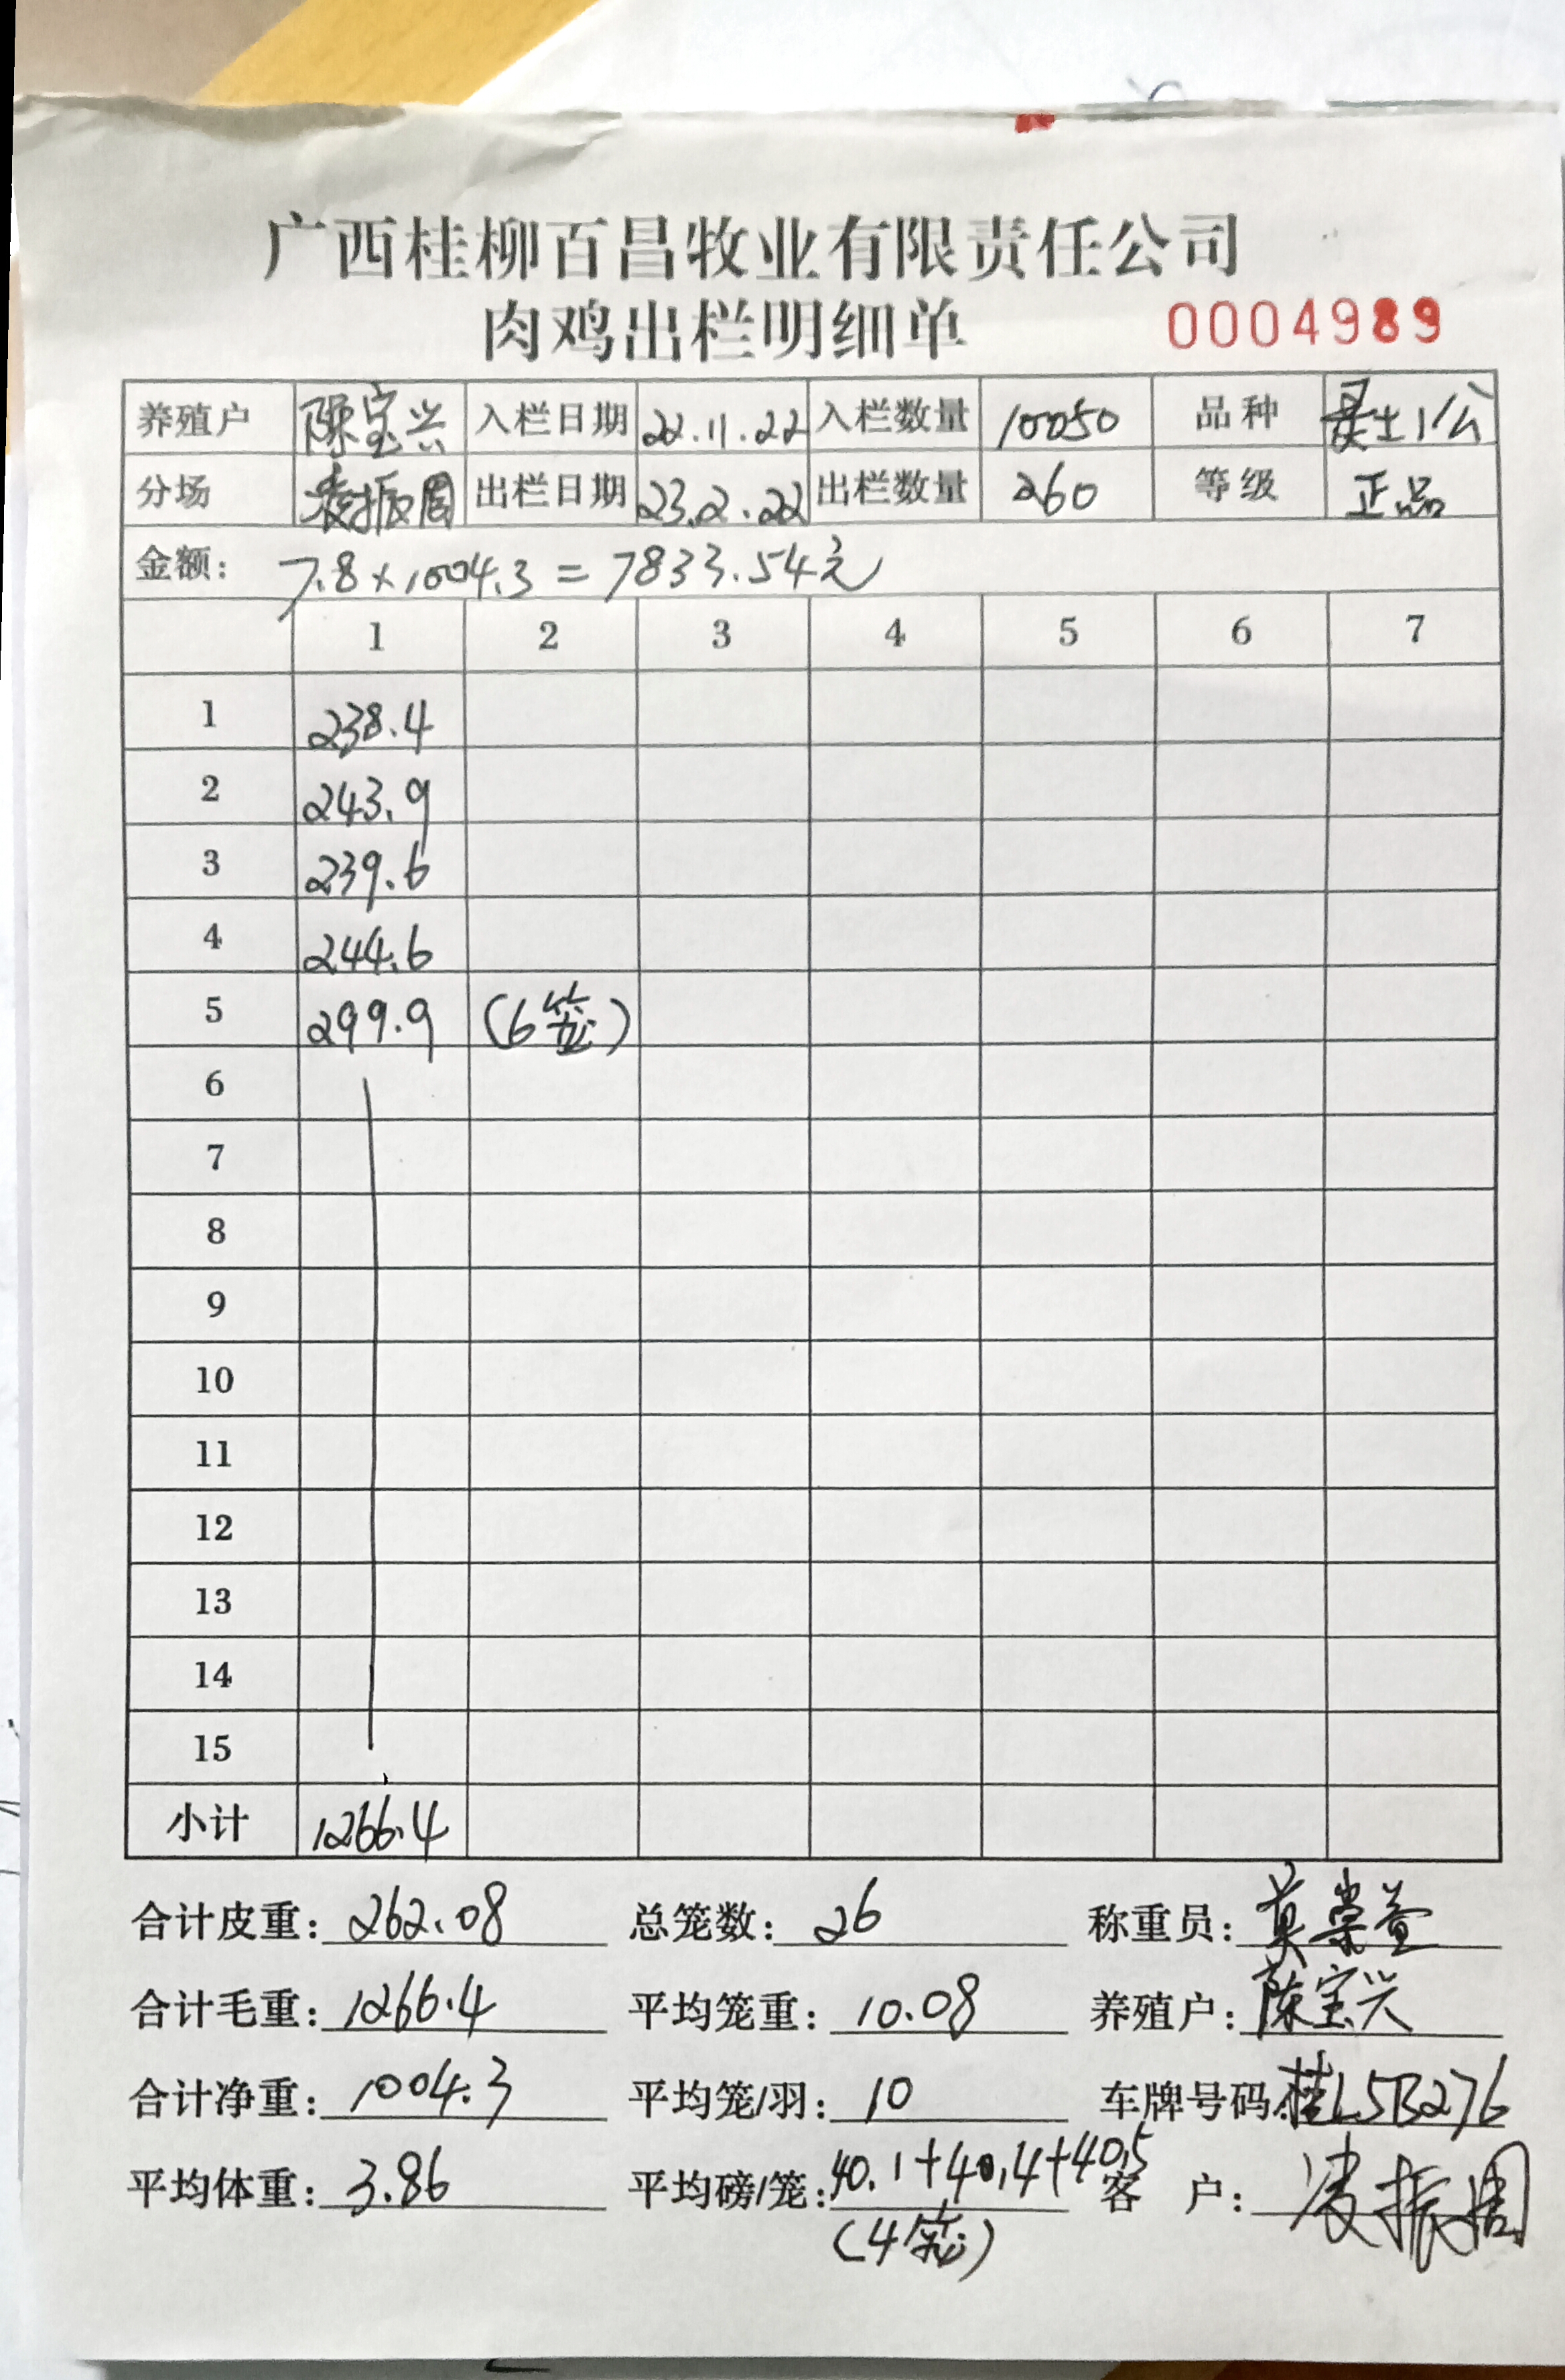 广西桂柳百昌牧业有限责任公司
肉鸡出栏明细单 0004989
养殖户 陈宝兴 入栏日期 22.11.22 入栏数量 10050 品种 土1公
分场 凌振周 出栏日期 23.2.22 出栏数量 260 等级 正品
金额: 7.8×1004.3=7833.54元
1 2 3 4 5 6 7
1 238.4
2 243.9
3 239.6
4 244.6
5 299.9 (6笼)
6
7
8
9
10
11
12
13
14
15
小计 1266.4
合计皮重: 262.08 总笼数: 26 称重员: 莫荣
合计毛重: 1266.4 平均笼重: 10.08 养殖户: 陈宝兴
合计净重: 1004.3 平均笼/羽: 10 车牌号码: 桂L5B276
平均体重: 3.86 平均磅/笼: 40.1+40.4+40.5 客 户: 凌振周
(4笼)